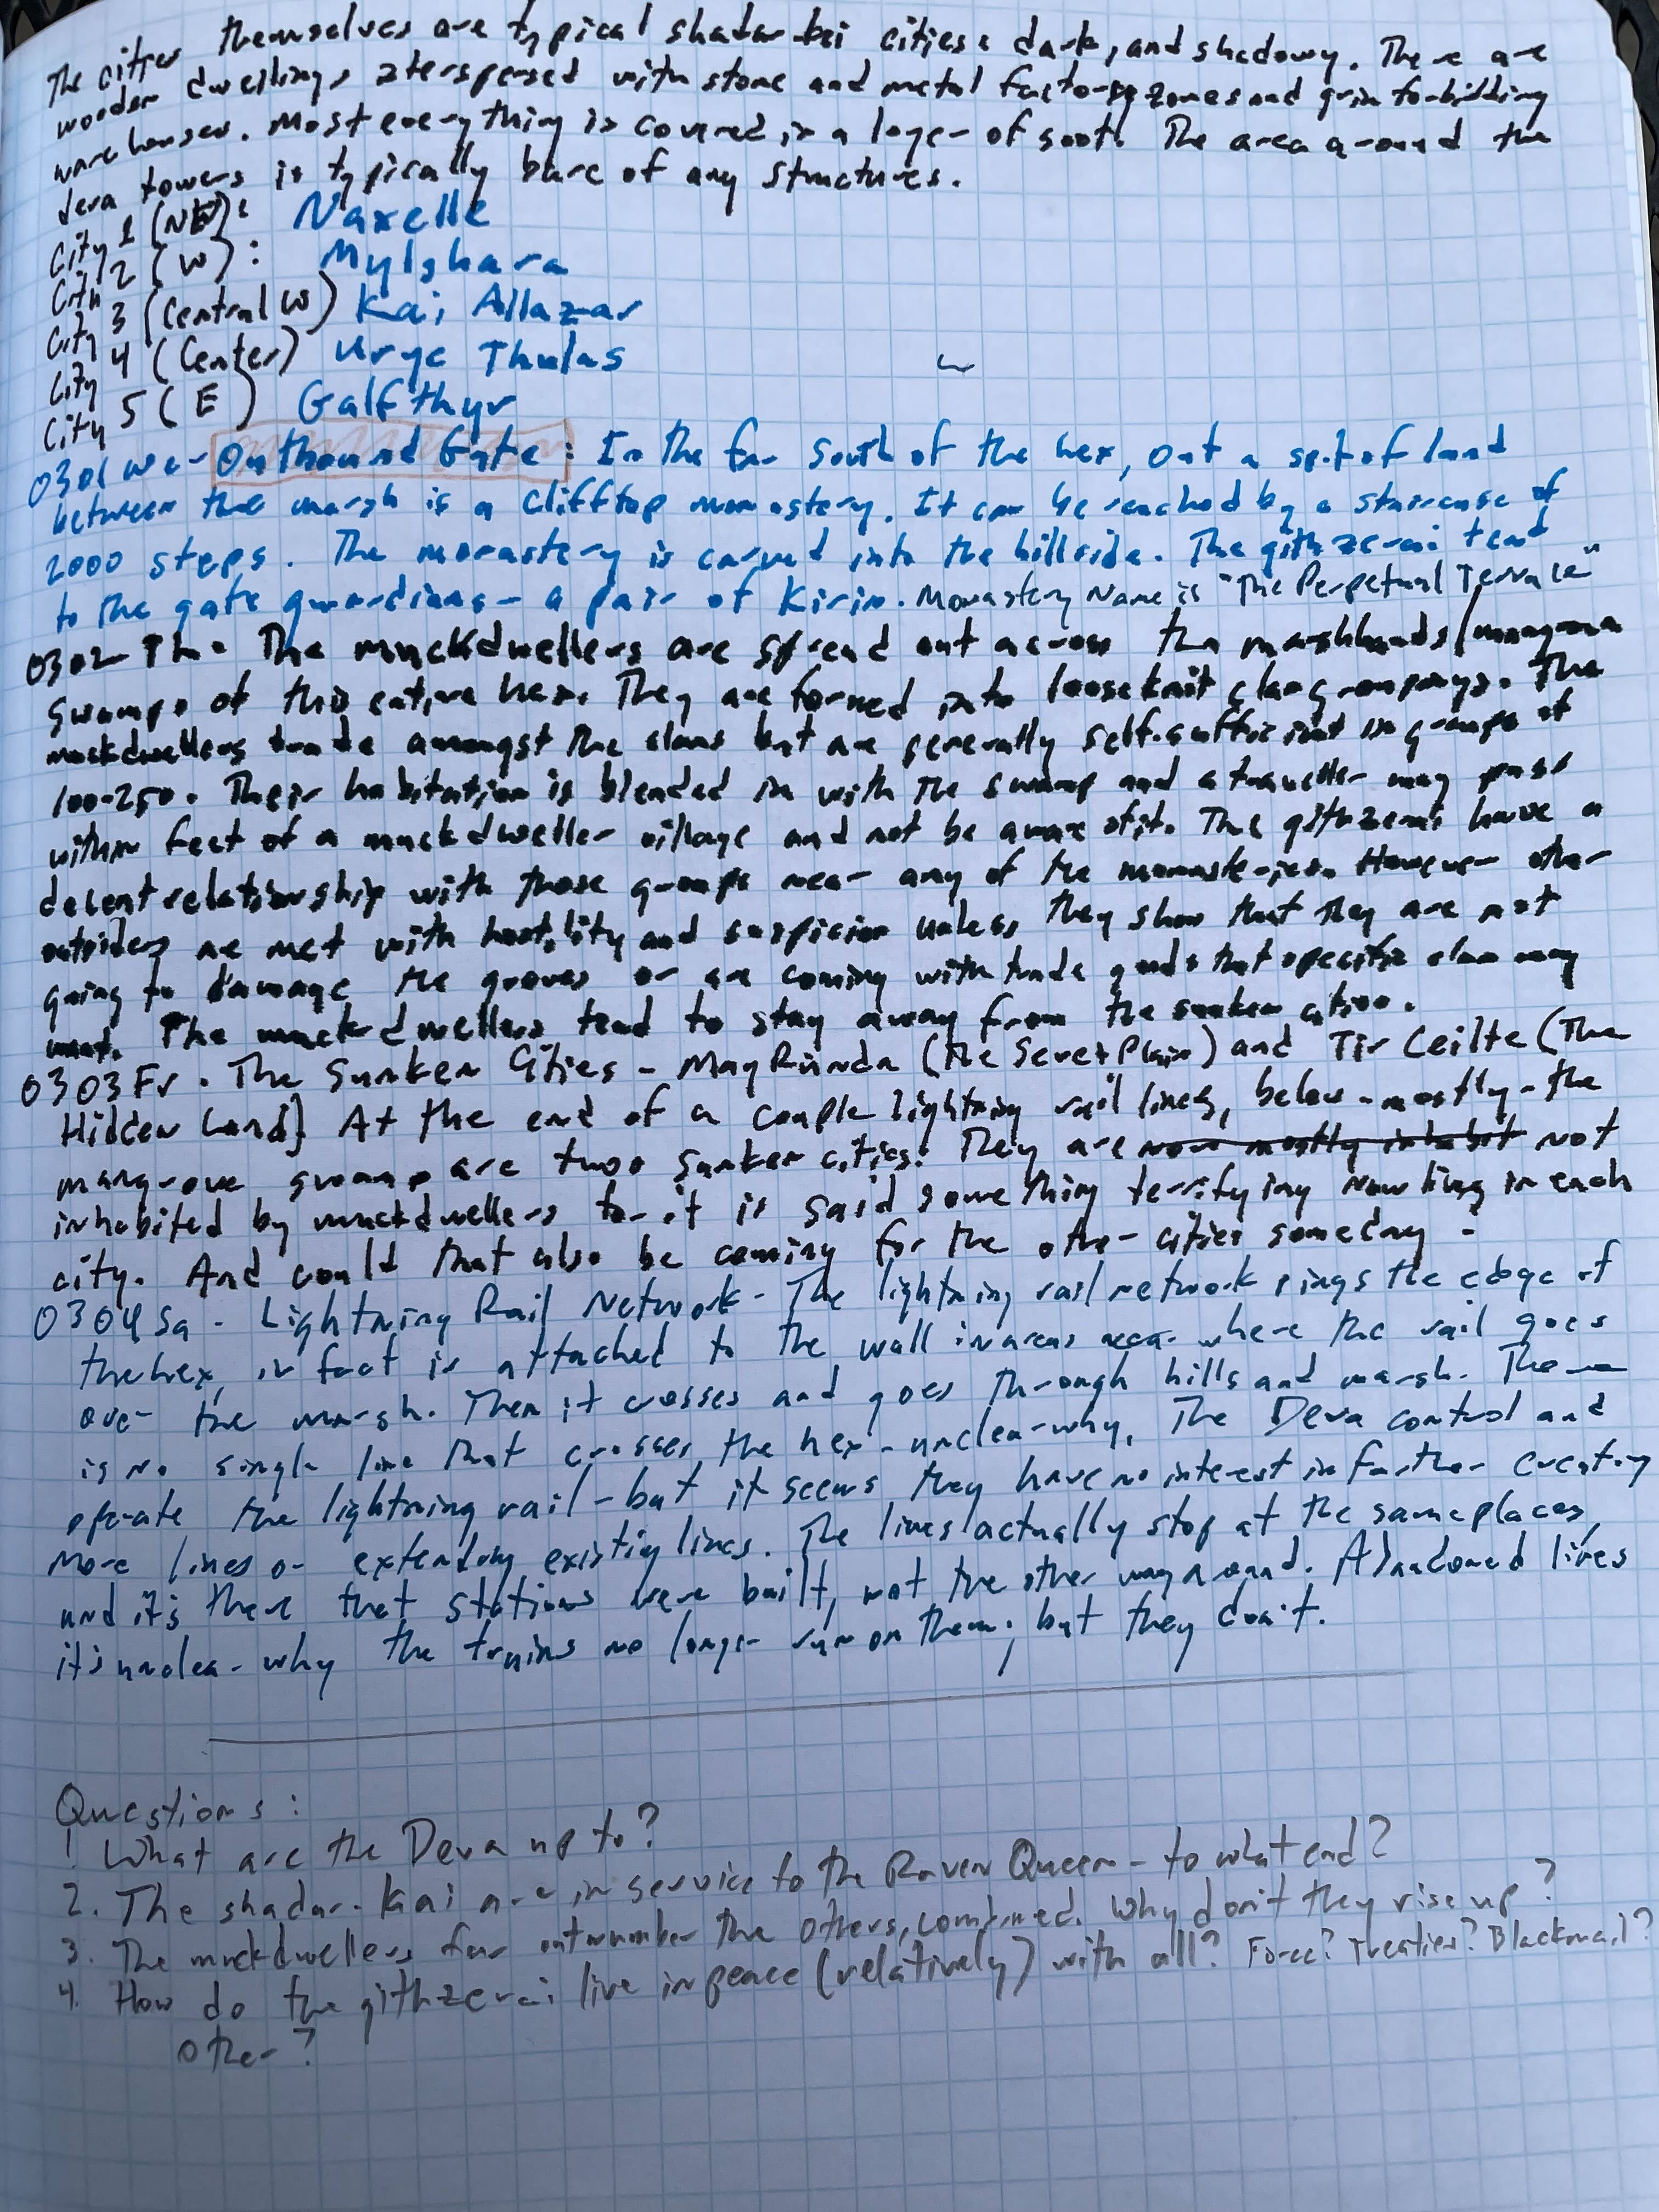 The cities themselves are typical shadar-kai cities: dark, and shadowy. There are
wooden dwellings interspersed with stone and metal factory zones and grim forbidding
warehouses. Most everything is covered in a layer of soot. The area around the
deva towers is typically bare of any structures.
City 1 (NE): Naxelle
City 2 (W): Mylghara
City 3 (Central W) Kai Allazar
City 4 (Center) Uryc Thulas
City 5 (E) Galfthyr
0301 We - Outbound Gate: In the far south of the hex, out a spit of land
between the marsh is a clifftop monastery. It can be reached by a staircase of
2000 steps. The monastery is carved into the hillside. The githzerai tend
to the gate guardians - a pair of Kirin. Monastery Name is "The Perpetual Terrace"
0302 Th. The muckdwellers are spread out across the marshlands/mangrove
swamps of this entire hex. They are formed into looseknit clan groupings. The
muckdwellers trade amongst the clans but are generally self-sufficient in groups of
100-250. Their habitation is blended in with the swamp and a traveller may pass
within feet of a muckdweller village and not be aware of it. The githzerai have a
decent relationship with those groups near any of the monasteries. However other
outsiders are met with hostility and suspicion unless they show that they are not
going to damage the groves or are coming with trade goods that specific clan may
want. The muckdwellers tend to stay away from the sunken cities.
0303 Fr. The Sunken Cities - Mag Rúnda (the Secret Plain) and Tír Ceilte (The
Hidden Land) At the end of a couple lightning rail lines, below - mostly - the
mangrove swamp are two sunken cities. They are now mostly inhabit not
inhabited by muckdwellers for it is said something terrifying now lives in each
city. And could that also be coming for the other cities someday.
0304 Sa - Lightning Rail Network - The lightning rail network rings the edge of
the hex, in fact is attached to the wall in areas near where the rail goes
over the marsh. Then it crosses and goes through hills and marsh. There
is no single line that crosses the hex - unclear why. The Deva control and
operate the lightning rail - but it seems they have no interest in further creating
more lines or extending existing lines. The lines actually stop at the same places,
and it's there that stations were built, not the other way around. Abandoned lines
it's unclear why the trains no longer run on them, but they don't.
Questions:
1 What are the Deva up to?
2. The shadar-kai are in service to the Raven Queen - to what end?
3. The muckdwellers far outnumber the others, combined. Why don't they rise up?
4. How do the githzerai live in peace (relatively) with all? Force? Treaties? Blackmail?
Other?